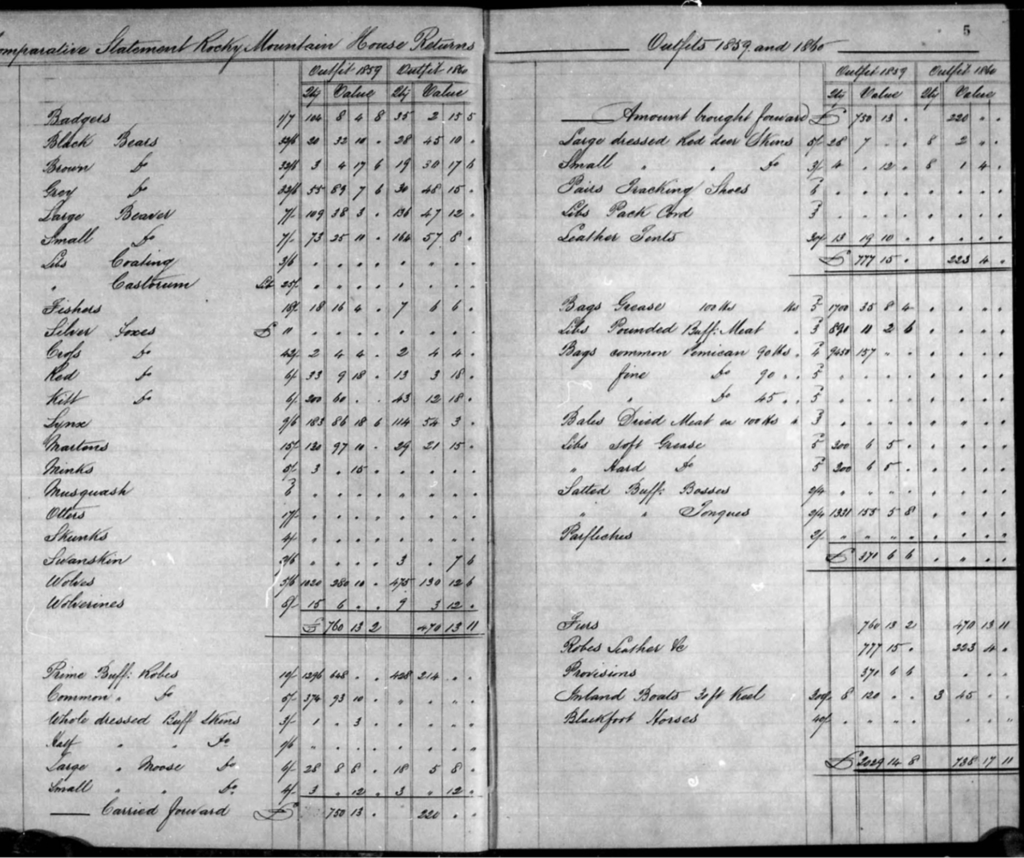 Comparative Statement Rocky Mountain House Returns
Outfit 1859 Outfit 1860
Qty Value Qty Value
Badgers 1/7 104 8 4 8 35 2 15 5
Black Bears 32/6 20 32 10 . 28 45 10 .
Brown Do 32/6 3 4 17 6 19 30 17 6
Grey Do 32/6 55 89 7 6 30 48 15 .
Large Beaver 7/- 109 38 3 . 136 47 12 .
Small Do 7/- 73 25 11 . 164 57 8 .
Lbs Coating 3/6 . . . . . . . .
" Castorum Lb 25/- . . . . . . . .
Fishers 18/- 18 16 4 . 7 6 6 .
Silver Foxes £ 11 . . . . . . . .
Cross Do 42/- 2 4 4 . 2 4 4 .
Red Do 6/- 33 9 18 . 13 3 18 .
Kitt Do 6/- 200 60 . . 43 12 18 .
Lynx 9/6 183 86 18 6 114 54 3 .
Martens 15/- 130 97 10 . 29 21 15 .
Minks 5/- 3 . 15 . . . . .
Musquash 6 . . . . . . . .
Otters 17/- . . . . . . . .
Skunks 4/- . . . . . . . .
Swanskin 2/6 . . . . 3 . 7 6
Wolves 5/6 1020 280 10 . 475 130 12 6
Wolverines 8/- 15 6 . . 9 3 12 .
£ 760 13 2 470 13 11
Prime Buff: Robes 10/- 1296 648 . . 428 214 . .
Common " Do 5/- 374 93 10 . " . . .
Whole dressed Buff Skins 3/- 1 . 3 . . . . .
Half " " Do 1/6 " . . . . . . .
Large " Moose Do 6/- 28 8 8 . 18 5 8 .
Small " " Do 4/- 3 . 12 . 3 " 12 .
Carried forward £ 750 13 . 220 . .
5
Outfits 1859 and 1860
Outfit 1859 Outfit 1860
Qty Value Qty Value
Amount brought forward £ 750 13 . 220 . .
Large dressed Red deer Skins 5/- 28 7 . . 8 2 . .
Small " " Do 3/- 4 . 12 . 8 1 4 .
Pairs Tracking Shoes 6 . . . . . . . .
Lbs Pack Cord 3 . . . . . . . .
Leather Tents 30/- 13 19 10 . . . . .
£ 777 15 . 223 4 .
Bags Grease 100 lbs lbs 5 1700 35 8 4 . . . .
Lbs Pounded Buff: Meat " 3 890 11 2 6 . . . .
Bags common Pemican 90 lbs " 4 9450 157 . . . . . .
fine Do 90 " " 5 . . . . . . . .
" Do 45 " " 5 . . . . . . . .
Bales Dried Meat ea 100 lbs " 3 . . . . . . . .
Lbs Soft Grease 5 200 6 5 . . . . .
" Hard Do 5 200 6 5 . . . . .
Salted Buff: Bosses 2/4 . . . . . . . .
" " Tongues 2/4 1331 155 5 8 . . . .
Parfleches 2/- . . . . . . . .
£ 371 6 6 . . . .
Furs 760 13 2 470 13 11
Robes Leather &c 777 15 . 223 4 .
Provisions 371 6 6
Inland Boats 30 ft Keel 300/- 8 120 . . 3 45 . .
Blackfoot Horses 40/- . . . . . . . .
£ 2029 14 8 738 17 11